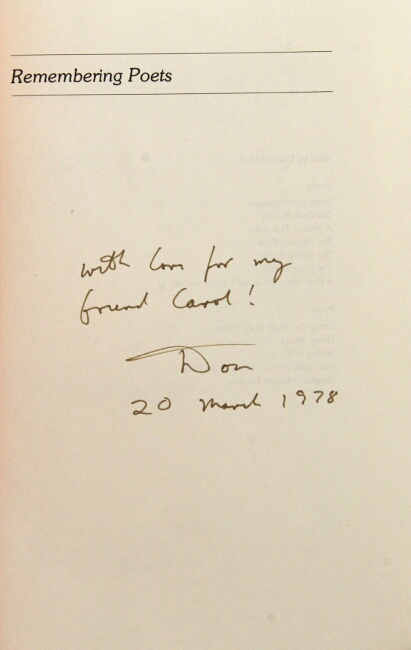 Remembering Poets
with love for my
friend Carol!
Don
20 March 1978